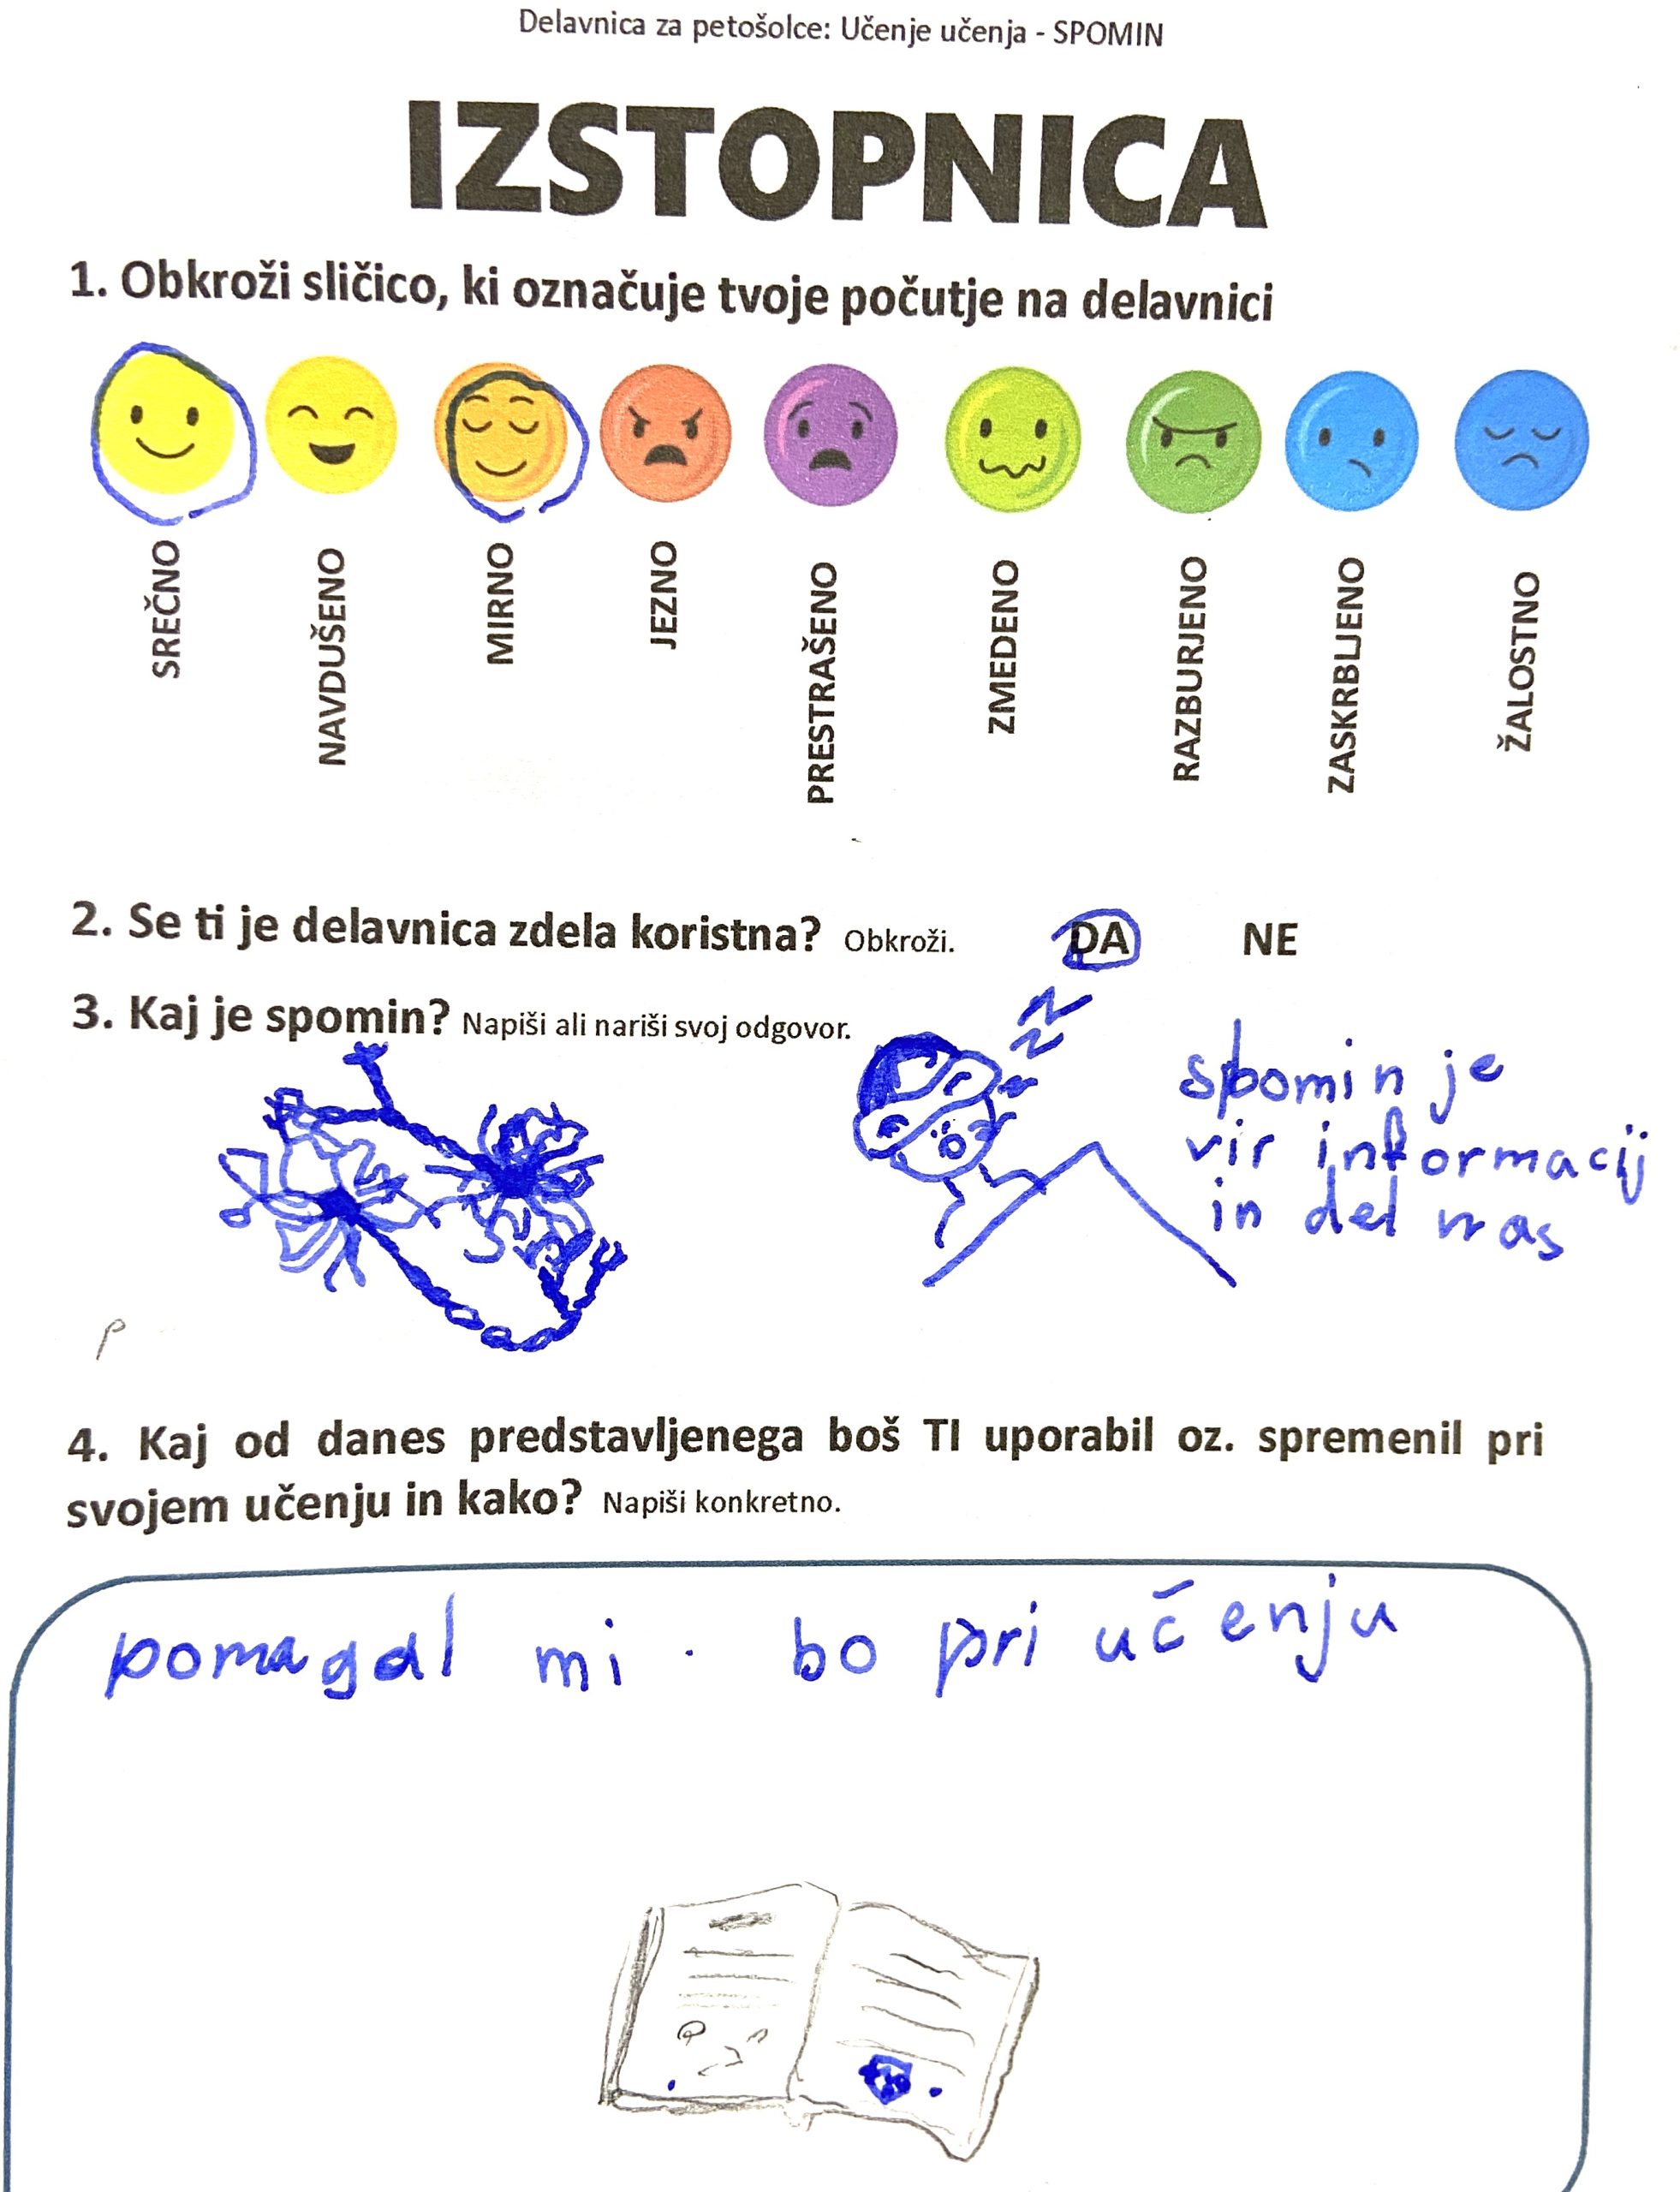 Delavnica za petošolce: Učenje učenja - SPOMIN
IZSTOPNICA
1. Obkroži sličico, ki označuje tvoje počutje na delavnici
SREČNO
NAVDUŠENO
MIRNO
JEZNO
PRESTRAŠENO
ZMEDENO
RAZBURJENO
ZASKRBLJENO
ŽALOSTNO
2. Se ti je delavnica zdela koristna? Obkroži. DA NE
3. Kaj je spomin? Napiši ali nariši svoj odgovor.
zz
spomin je
vir informacij
in del nas
P
4. Kaj od danes predstavljenega boš TI uporabil oz. spremenil pri
svojem učenju in kako? Napiši konkretno.
pomagal mi bo pri učenju